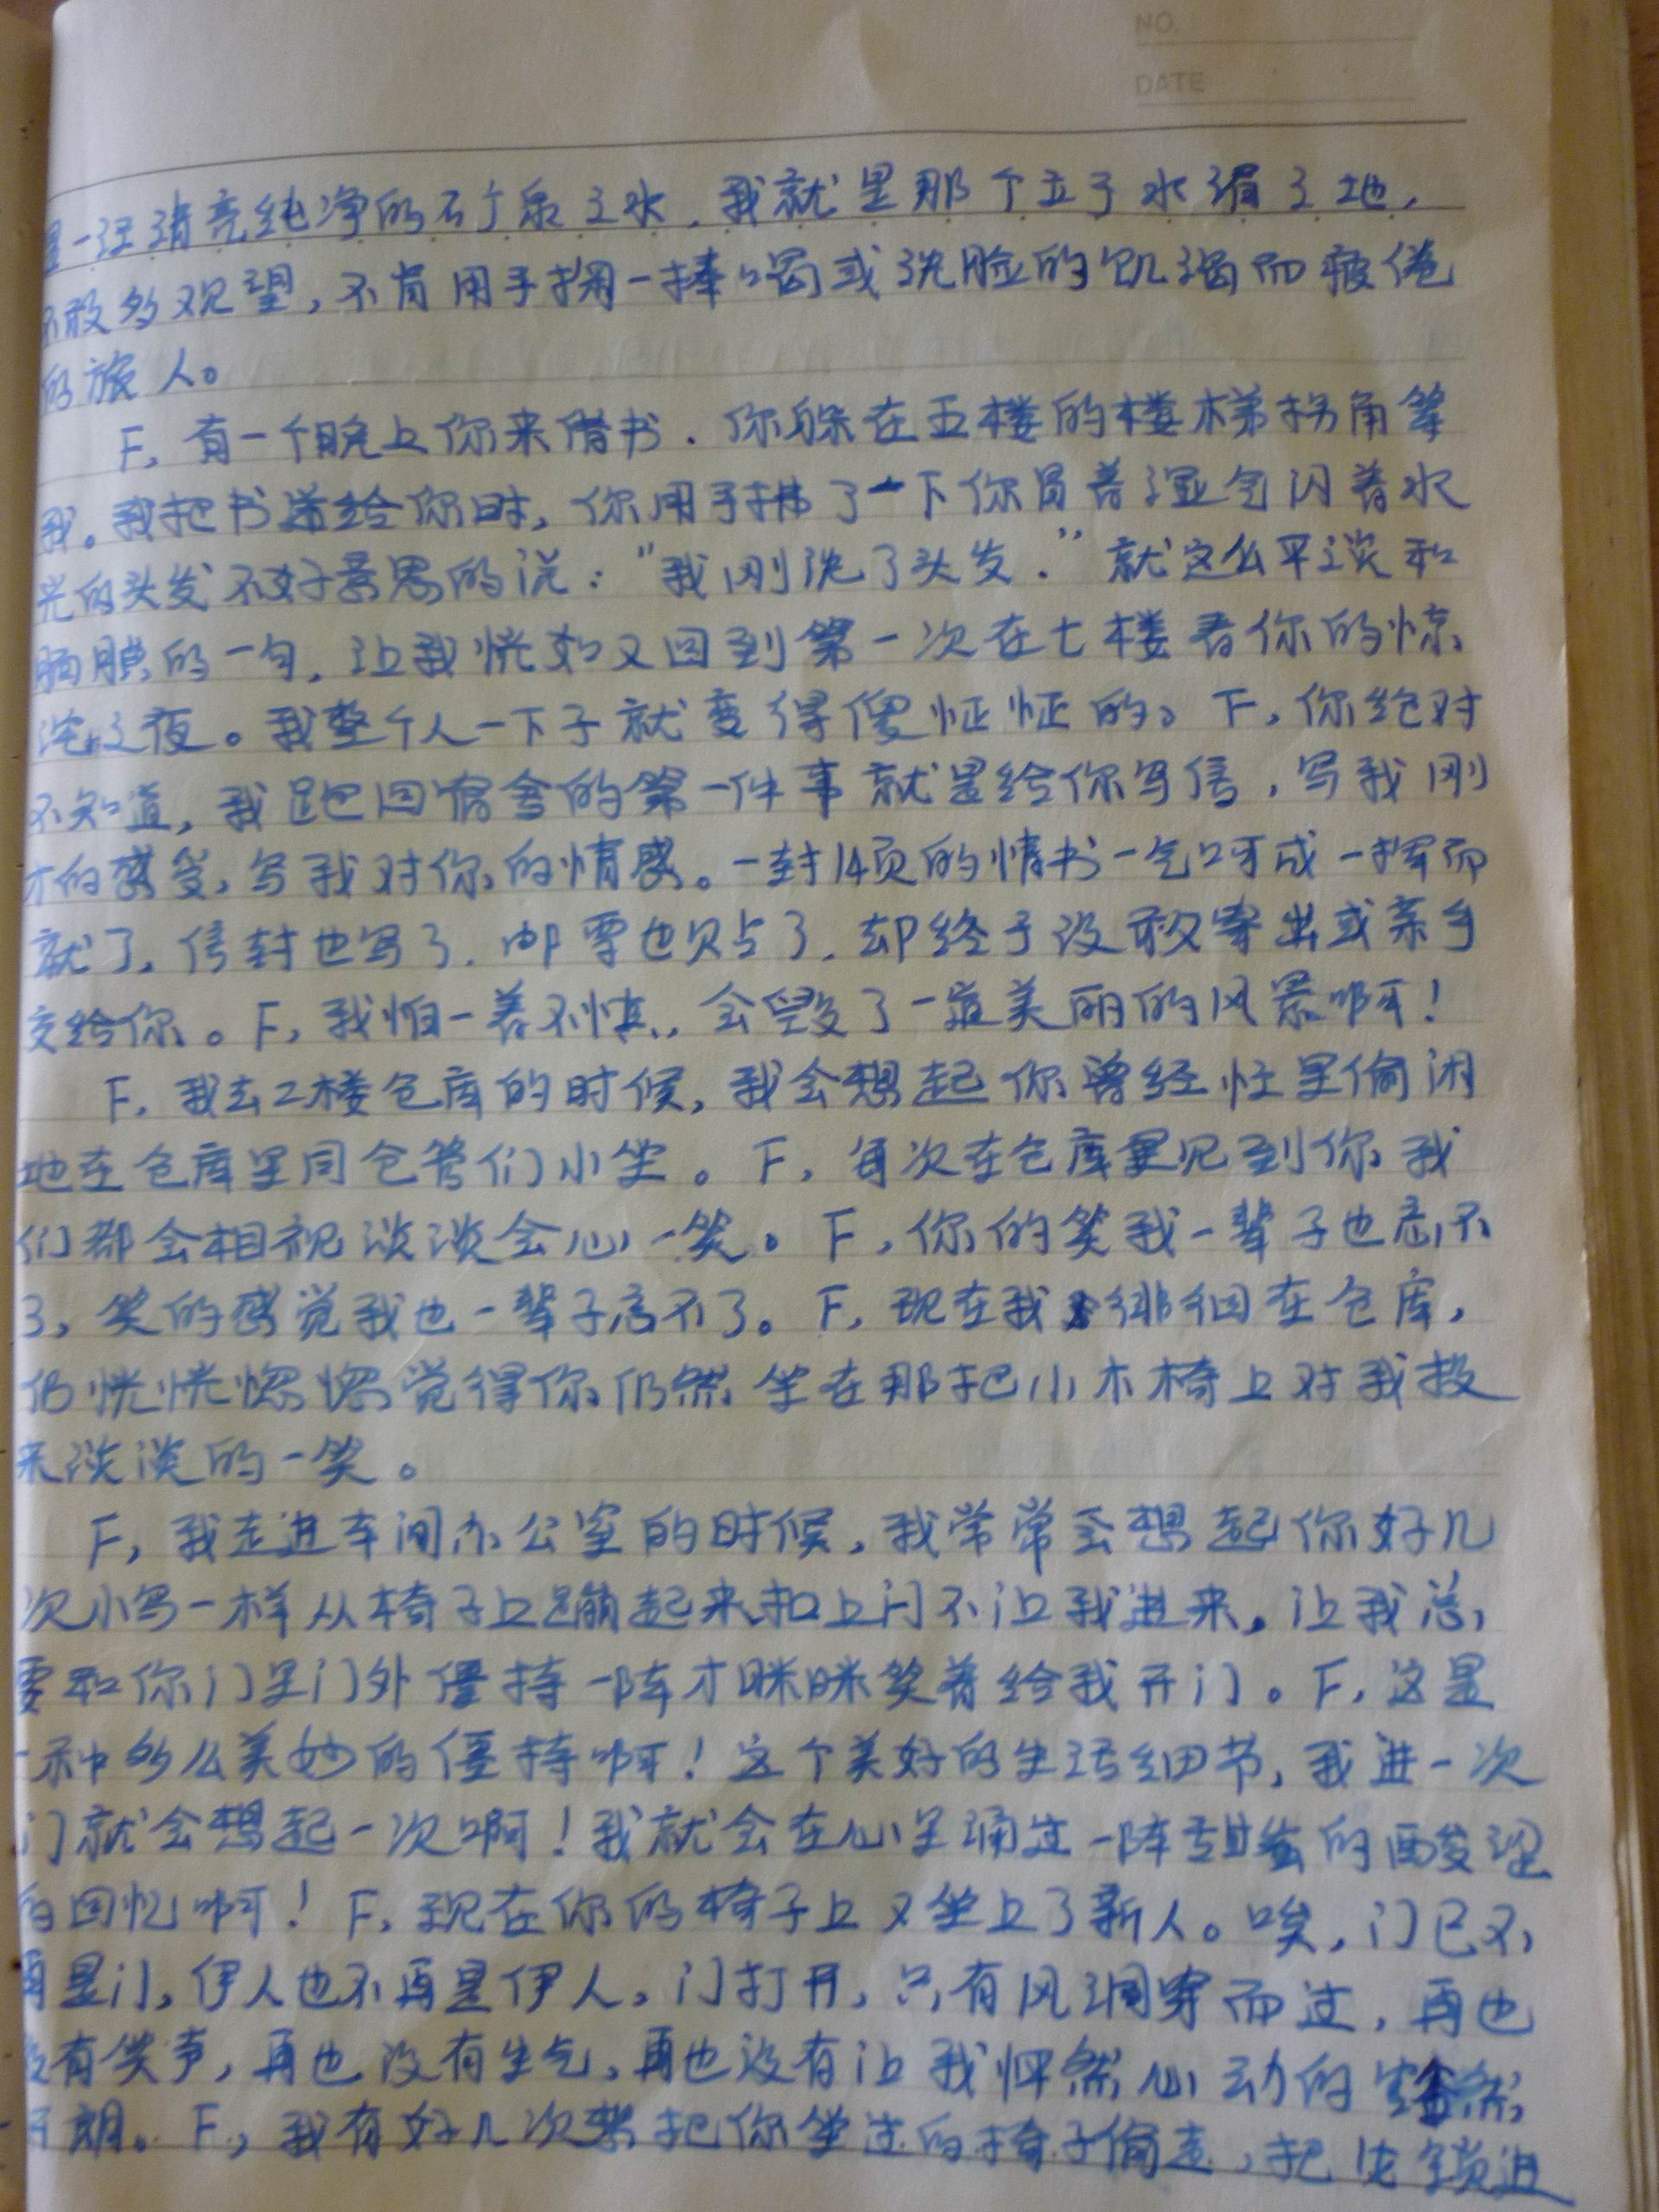 NO.
DATE
是一汪清亮纯净的矿泉之水，我就是那个立于水湄之地，
不敢多观望，不肯用手掬一捧喝或洗脸的饥渴而疲倦
的旅人。
F，有一个晚上你来借书．你躲在五楼的楼梯拐角等
我。我把书递给你时，你用手拂了一下你冒着湿气闪着水
光的头发不好意思的说："我刚洗了头发．"就这么平淡和
腼腆的一句，让我恍如又回到第一次在七楼看你的惊
诧之夜。我整个人一下子就变得傻怔怔的。F，你绝对
不知道，我跑回宿舍的第一件事就是给你写信，写我刚
才的感受，写我对你的情感。一封14页的情书一气呵成一挥而
就了，信封也写了．邮票也贴了．却终于没敢寄出或亲手
交给你。F，我怕一着不慎，会毁了一道美丽的风景啊！
F，我去2楼仓库的时候，我会想起你曾经忙里偷闲
地在仓库里同仓管们小坐。F，每次在仓库里见到你我
们都会相视淡淡会心一笑。F，你的笑我一辈子也忘不
了，笑的感觉我也一辈子忘不了。F，现在我徘徊在仓库，
仍恍恍惚惚觉得你仍然坐在那把小木椅上对我投
来淡淡的一笑。
F，我走进车间办公室的时候，我常常会想起你好几
次小鸟一样从椅子上蹦起来扣上门不让我进来。让我总
要和你门里门外僵持一阵才眯眯笑着给我开门。F，这是
一种多么美妙的僵持啊！这个美好的生活细节，我进一次
门就会想起一次啊！我就会在心里涌过一阵甜蜜的酸涩
的回忆啊！F，现在你的椅子上又坐上了新人。唉，门已不
再是门，伊人也不再是伊人。门打开，只有风洞穿而过，再也
没有笑声，再也没有生气，再也没有让我怦然心动的豁然
开朗。F，我有好几次想把你坐过的椅子偷走，把它锁进